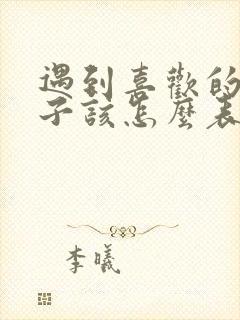 遇到喜歡的
子該怎麼表
李曦